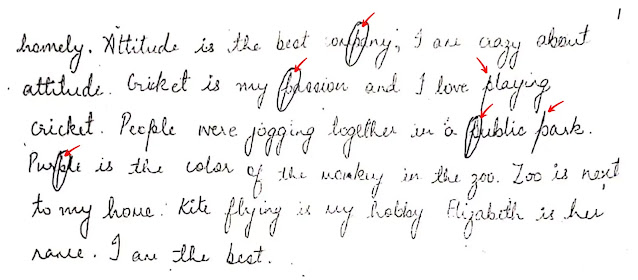 1
homely. Attitude is the best company, I am crazy about
attitude. Cricket is my passion and I love playing
cricket. People were jogging together in a public park.
Purple is the color of the monkey in the zoo. Zoo is next
to my home. Kite flying is my hobby Elizabeth is her
name. I am the best.